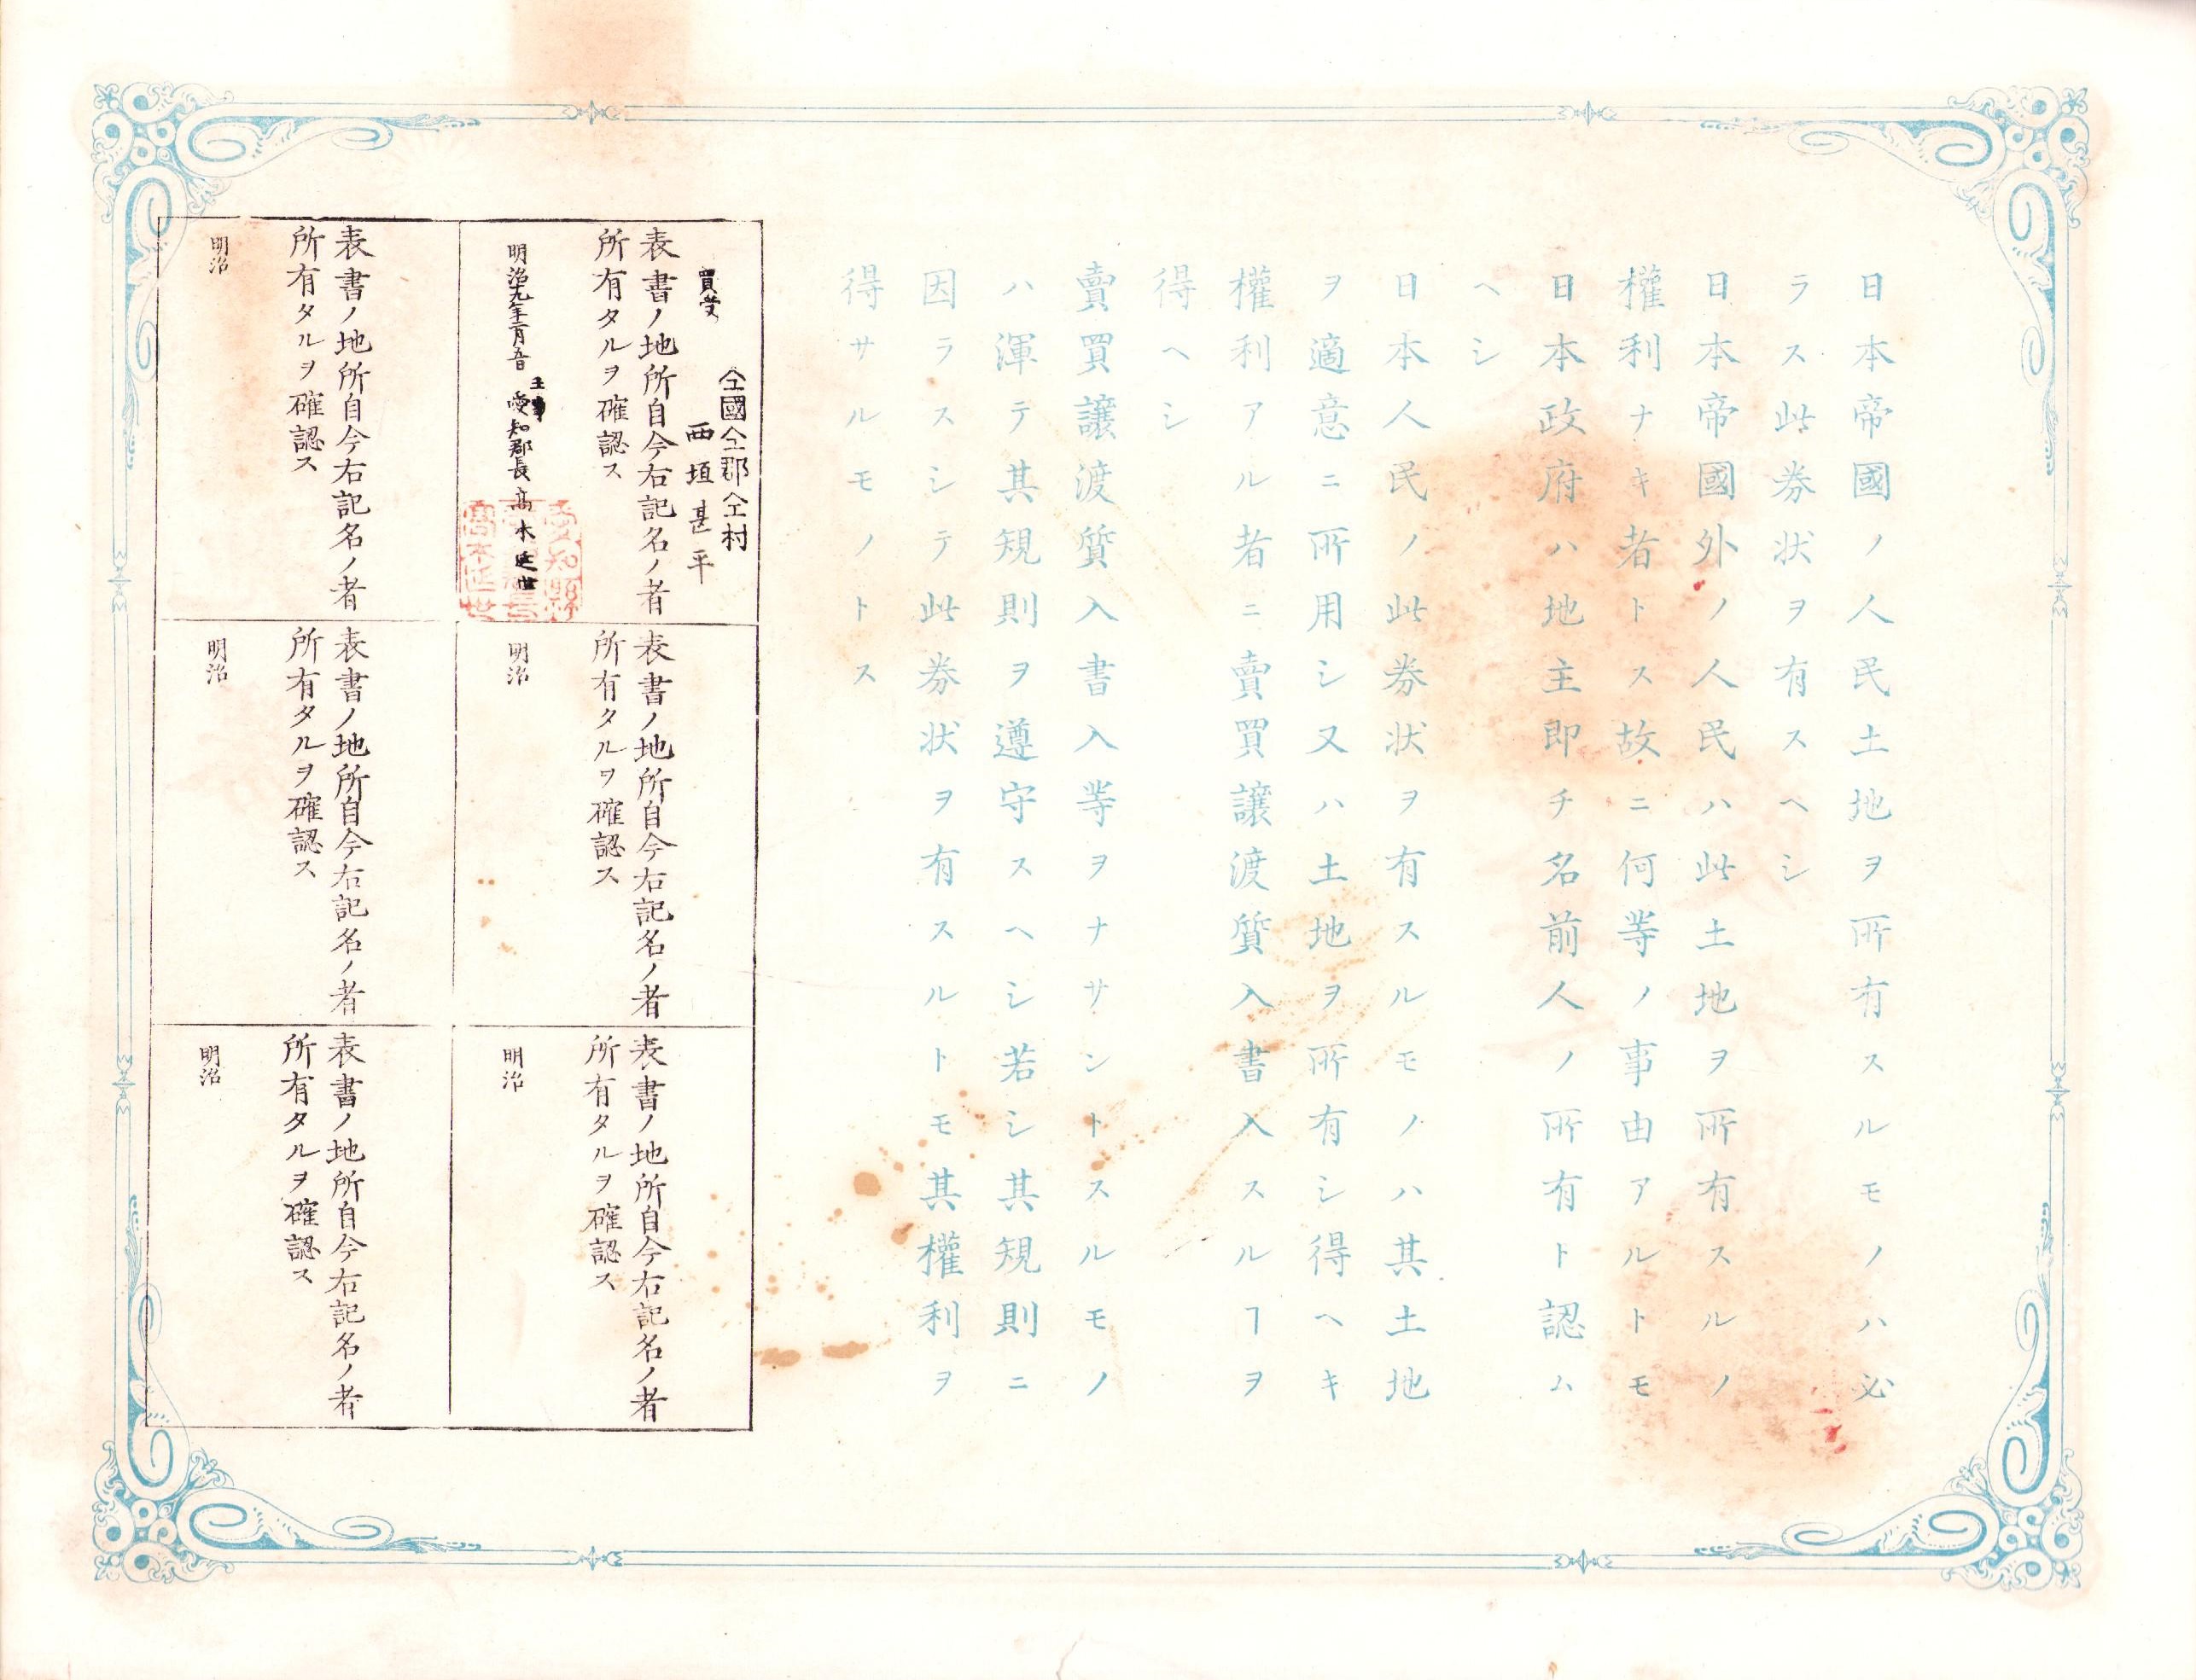 日本帝國ノ人民土地ヲ所有スルモノハ必
ラス此券状ヲ有スヘシ
日本帝國外ノ人民ハ此土地ヲ所有スルノ
權利ナキ者トス故ニ何等ノ事由アルトモ
日本政府ハ地主即チ名前人ノ所有ト認ム
ヘシ
日本人民ノ此券状ヲ有スルモノハ其土地
ヲ適意ニ所用シ又ハ土地ヲ所有シ得ヘキ
權利アル者ニ賣買讓渡質入書入スルヿヲ
得ヘシ
賣買讓渡質入書入等ヲナサントスルモノ
ハ渾テ其規則ヲ遵守スヘシ若シ其規則ニ
因ラスシテ此券状ヲ有スルトモ其權利ヲ
得サルモノトス
仝國仝郡仝村
買受 西垣甚平
表書ノ地所自今右記名ノ者
所有タルヲ確認ス
愛知郡長
表書ノ地所自今右記名ノ者
所有タルヲ確認ス
明治
表書ノ地所自今右記名ノ者
所有タルヲ確認ス
明治
表書ノ地所自今右記名ノ者
所有タルヲ確認ス
明治
表書ノ地所自今右記名ノ者
所有タルヲ確認ス
明治
表書ノ地所自今右記名ノ者
所有タルヲ確認ス
明治